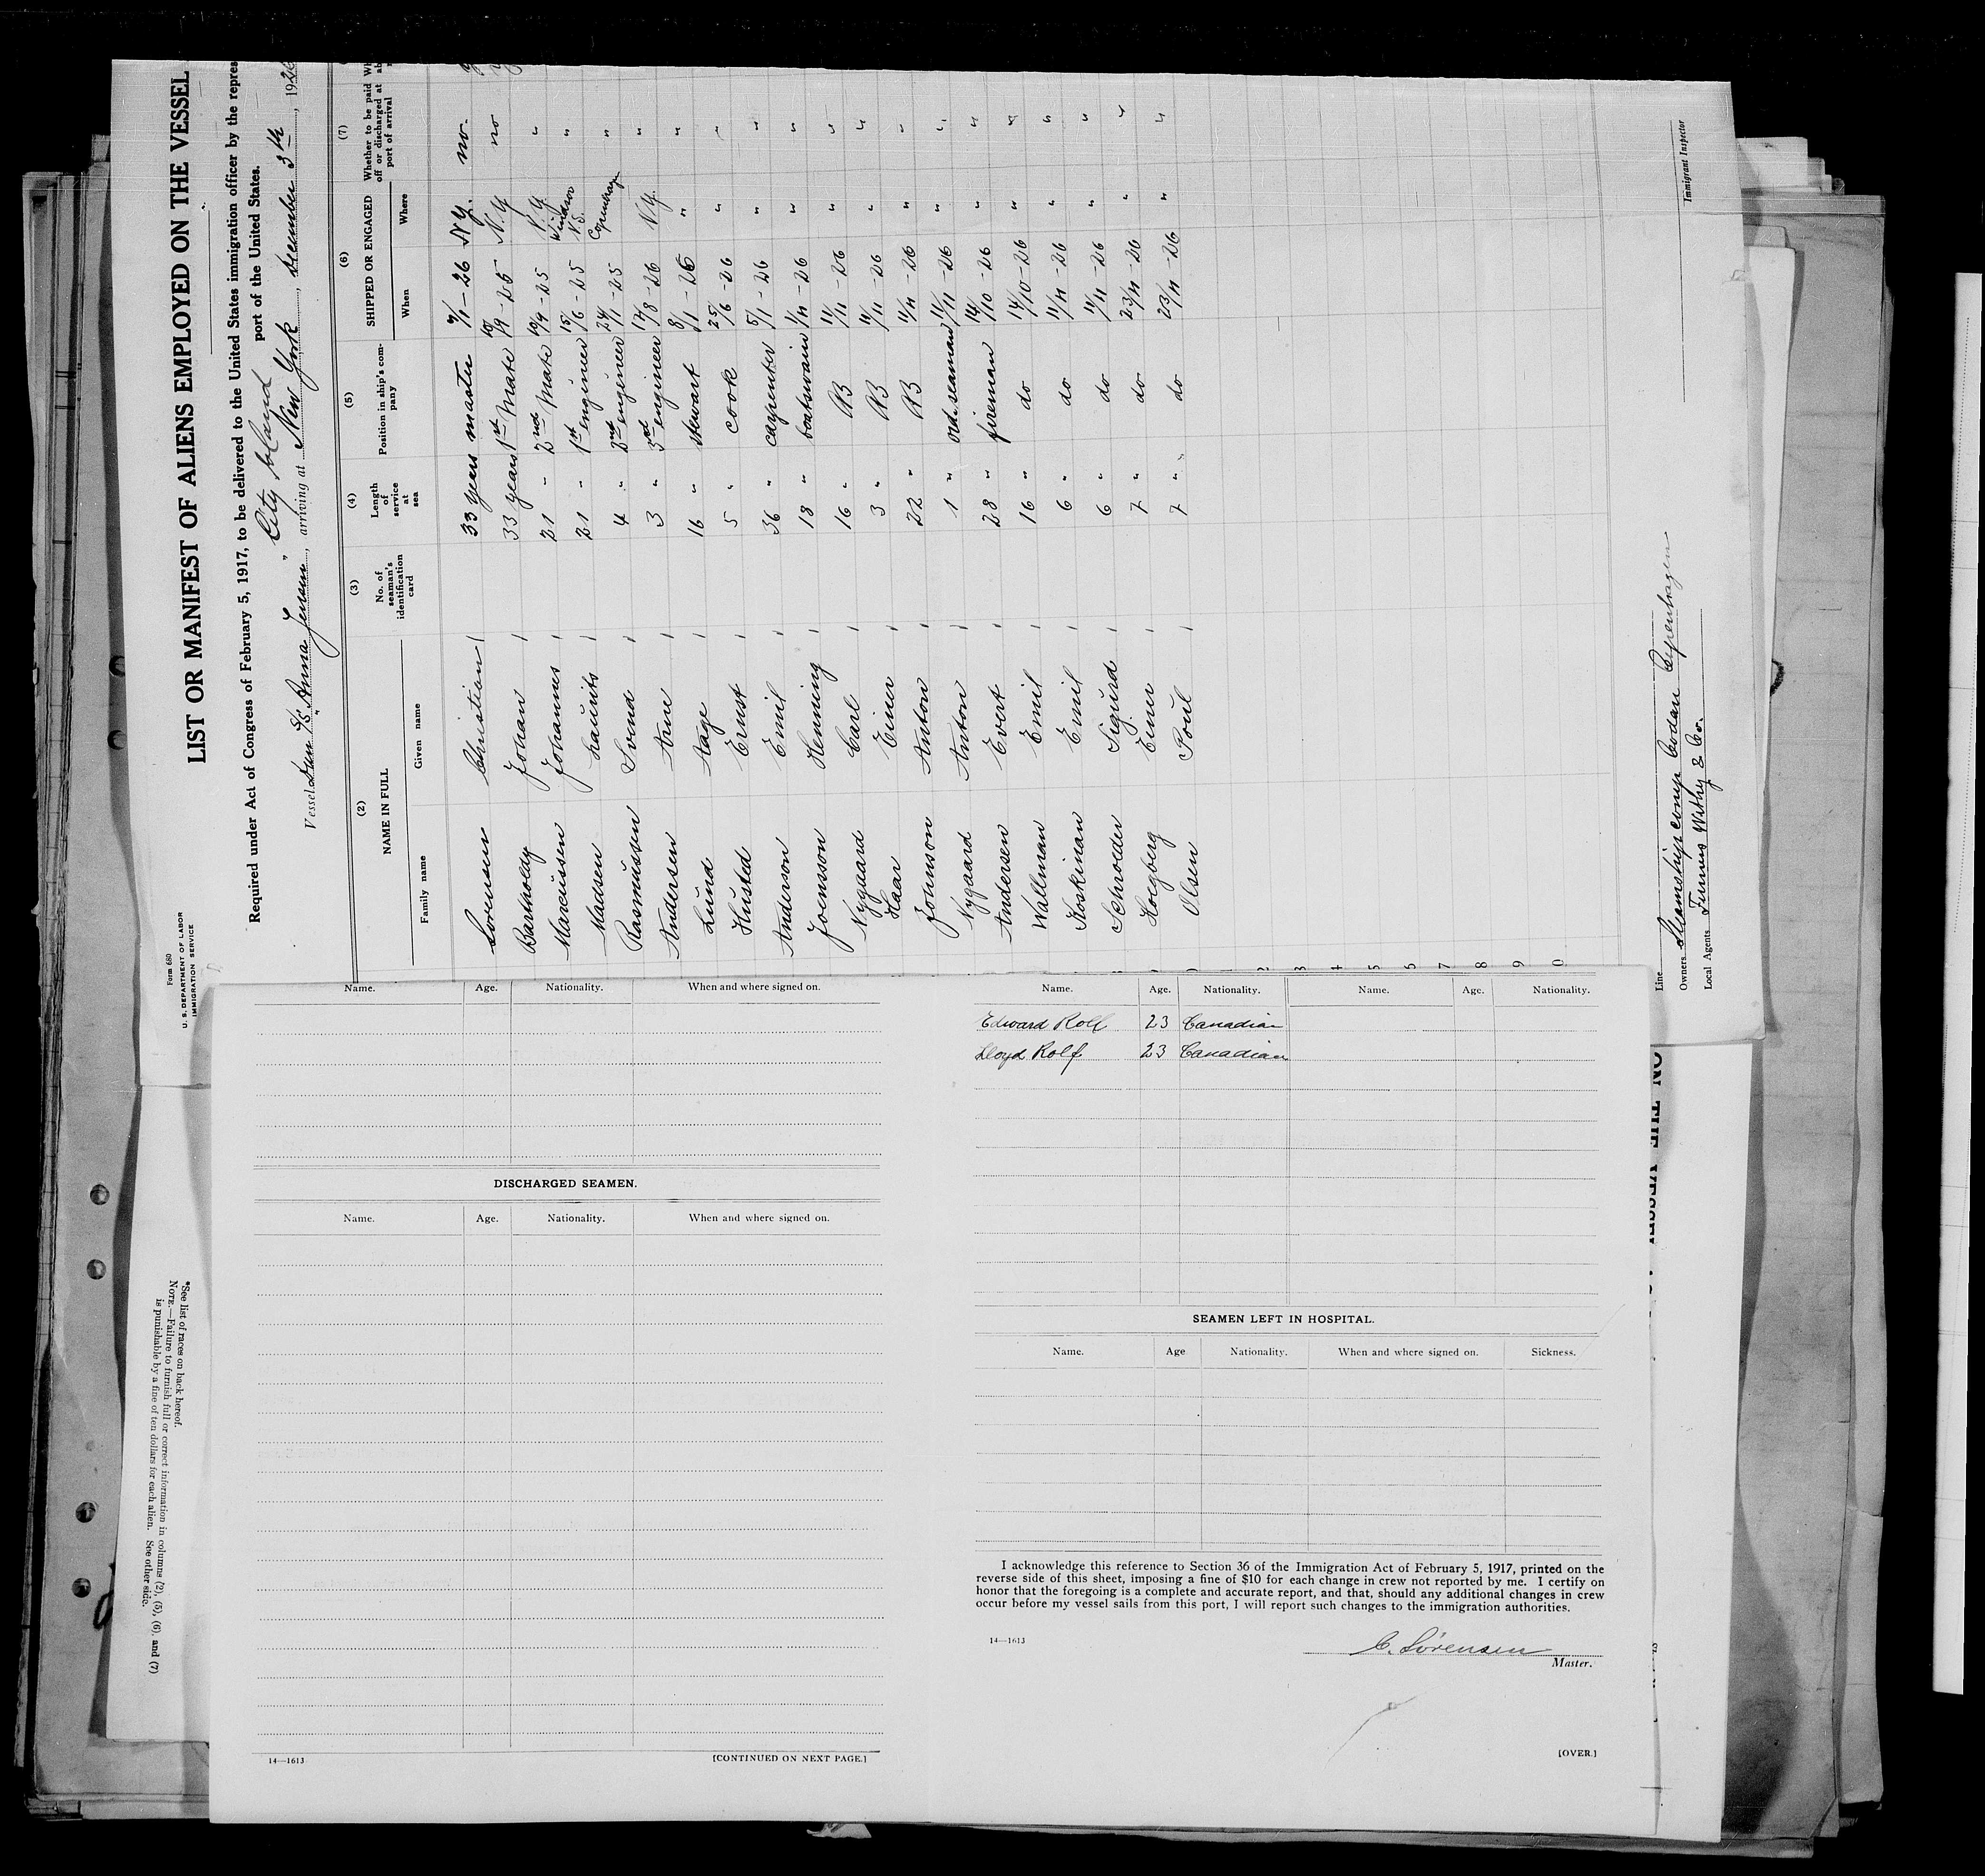 Form 680
U. S. DEPARTMENT OF LABOR
IMMIGRATION SERVICE
LIST OR MANIFEST OF ALIENS EMPLOYED ON THE VESSEL
Required under Act of Congress of February 5, 1917, to be delivered to the United States immigration officer by the repres
port of the United States.
Vessel S/S Anna Jensen, arriving at New York, December 3th, 1926
(2) (3) (4) (5) (6) (7)
NAME IN FULL
Family name Given name
No. of seaman's identification card
Length of service at sea
Position in ship's company
SHIPPED OR ENGAGED
When Where
Whether to be paid off or discharged at port of arrival
Sorensen Christian 33 years master 7/1-26 N.Y. no
Bartholdy Johan 33 years 1st Mate N.Y no
Marcussen Johannes 21 - 2nd Mate 19/9-25 N.Y "
Madsen Laurits 21 " 1st engineer 15/6-25 Windsor N.S. "
Rasmussen Svend 4 " 2nd engineer 24/1-25 Copenhagen "
Andersen Arne 3 " 3rd engineer 17/8-26 N.Y. "
Lund Aage 16 " stewart 8/1-26 " "
Husted Ernst 5 " cook 25/6-26 " "
Anderson Emil 36 " carpenter 5/1-26 " "
Joensson Henning 18 " boatswain 1/11-26 " "
Nygaard Carl 16 " AB 11/11-26 " "
Haar Einer 3 " AB 11/11-26 " "
Johnson Anton 22 " AB 11/11-26 " "
Nygaard Anton 1 " ord. seaman 11/11-26 " "
Andersen Evert 28 " fireman 14/10-26 " "
Wallman Emil 16 " do 14/10-26 " "
Koskinan Emil 6 " do 11/11-26 " "
Schroeder Sigurd 6 " do 11/11-26 " "
Hoegberg Einer 7 " do 23/11-26 " "
Olsen Poul 7 " do 23/11-26 " "
Line
Owners Steamship comp Codan Copenhagen
Local Agents Furness Withy & Co.
Immigrant Inspector
Name. Age. Nationality. When and where signed on.
DISCHARGED SEAMEN.
Name. Age. Nationality. When and where signed on.
14—1613
[CONTINUED ON NEXT PAGE.]
Name. Age. Nationality. Name. Age. Nationality.
Edward Rolf 23 Canadian
Lloyd Rolf 23 Canadian
SEAMEN LEFT IN HOSPITAL.
Name. Age Nationality. When and where signed on. Sickness.
I acknowledge this reference to Section 36 of the Immigration Act of February 5, 1917, printed on the
reverse side of this sheet, imposing a fine of $10 for each change in crew not reported by me. I certify on
honor that the foregoing is a complete and accurate report, and that, should any additional changes in crew
occur before my vessel sails from this port, I will report such changes to the immigration authorities.
14—1613
C. Sörensen
Master.
[OVER.]
*See list of races on back hereof.
NOTE.—Failure to furnish full or correct information in columns (2), (5), (6), and (7)
is punishable by a fine of ten dollars for each alien. See other side.
ON THE VESSEL